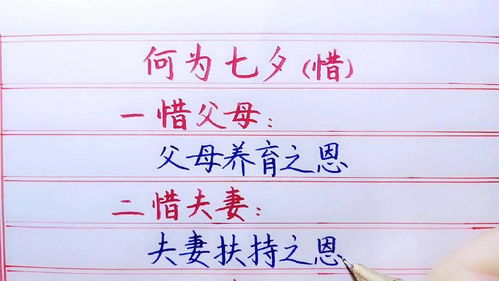 何为七夕(惜)
一惜父母:
父母养育之恩
二惜夫妻:
夫妻扶持之恩